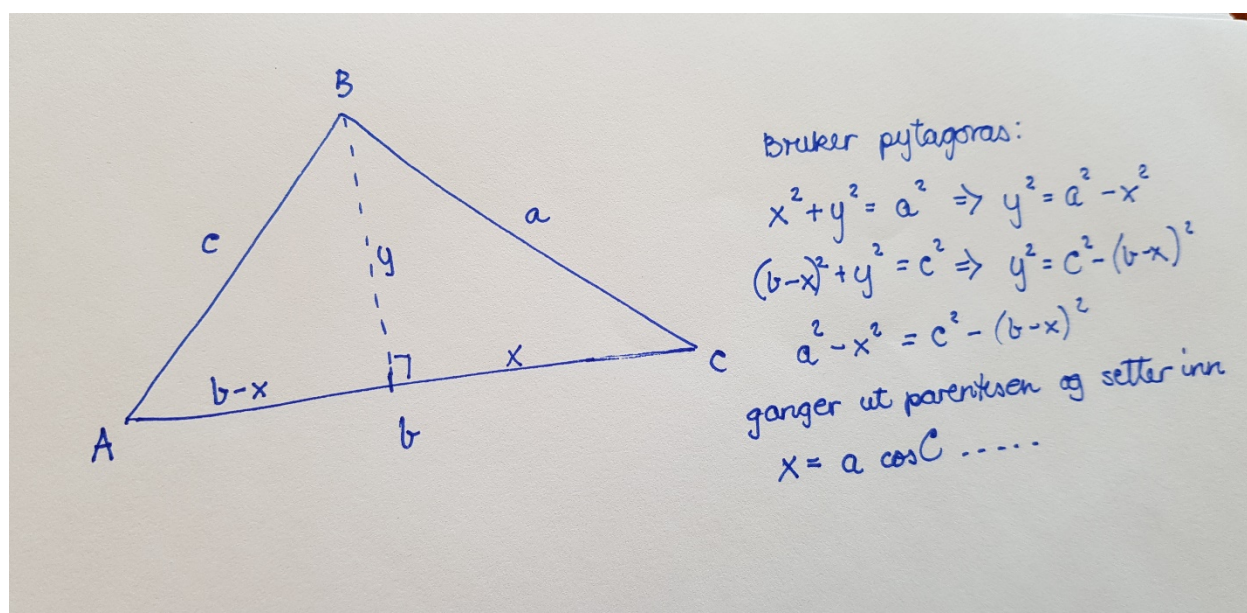 B
c
a
y
b-x
x
A
b
C
Bruker pytagoras:
x² + y² = a² => y² = a² - x²
(b-x)² + y² = c² => y² = c² - (b-x)²
a² - x² = c² - (b-x)²
ganger ut parentesen og setter inn
x = a cosC .....